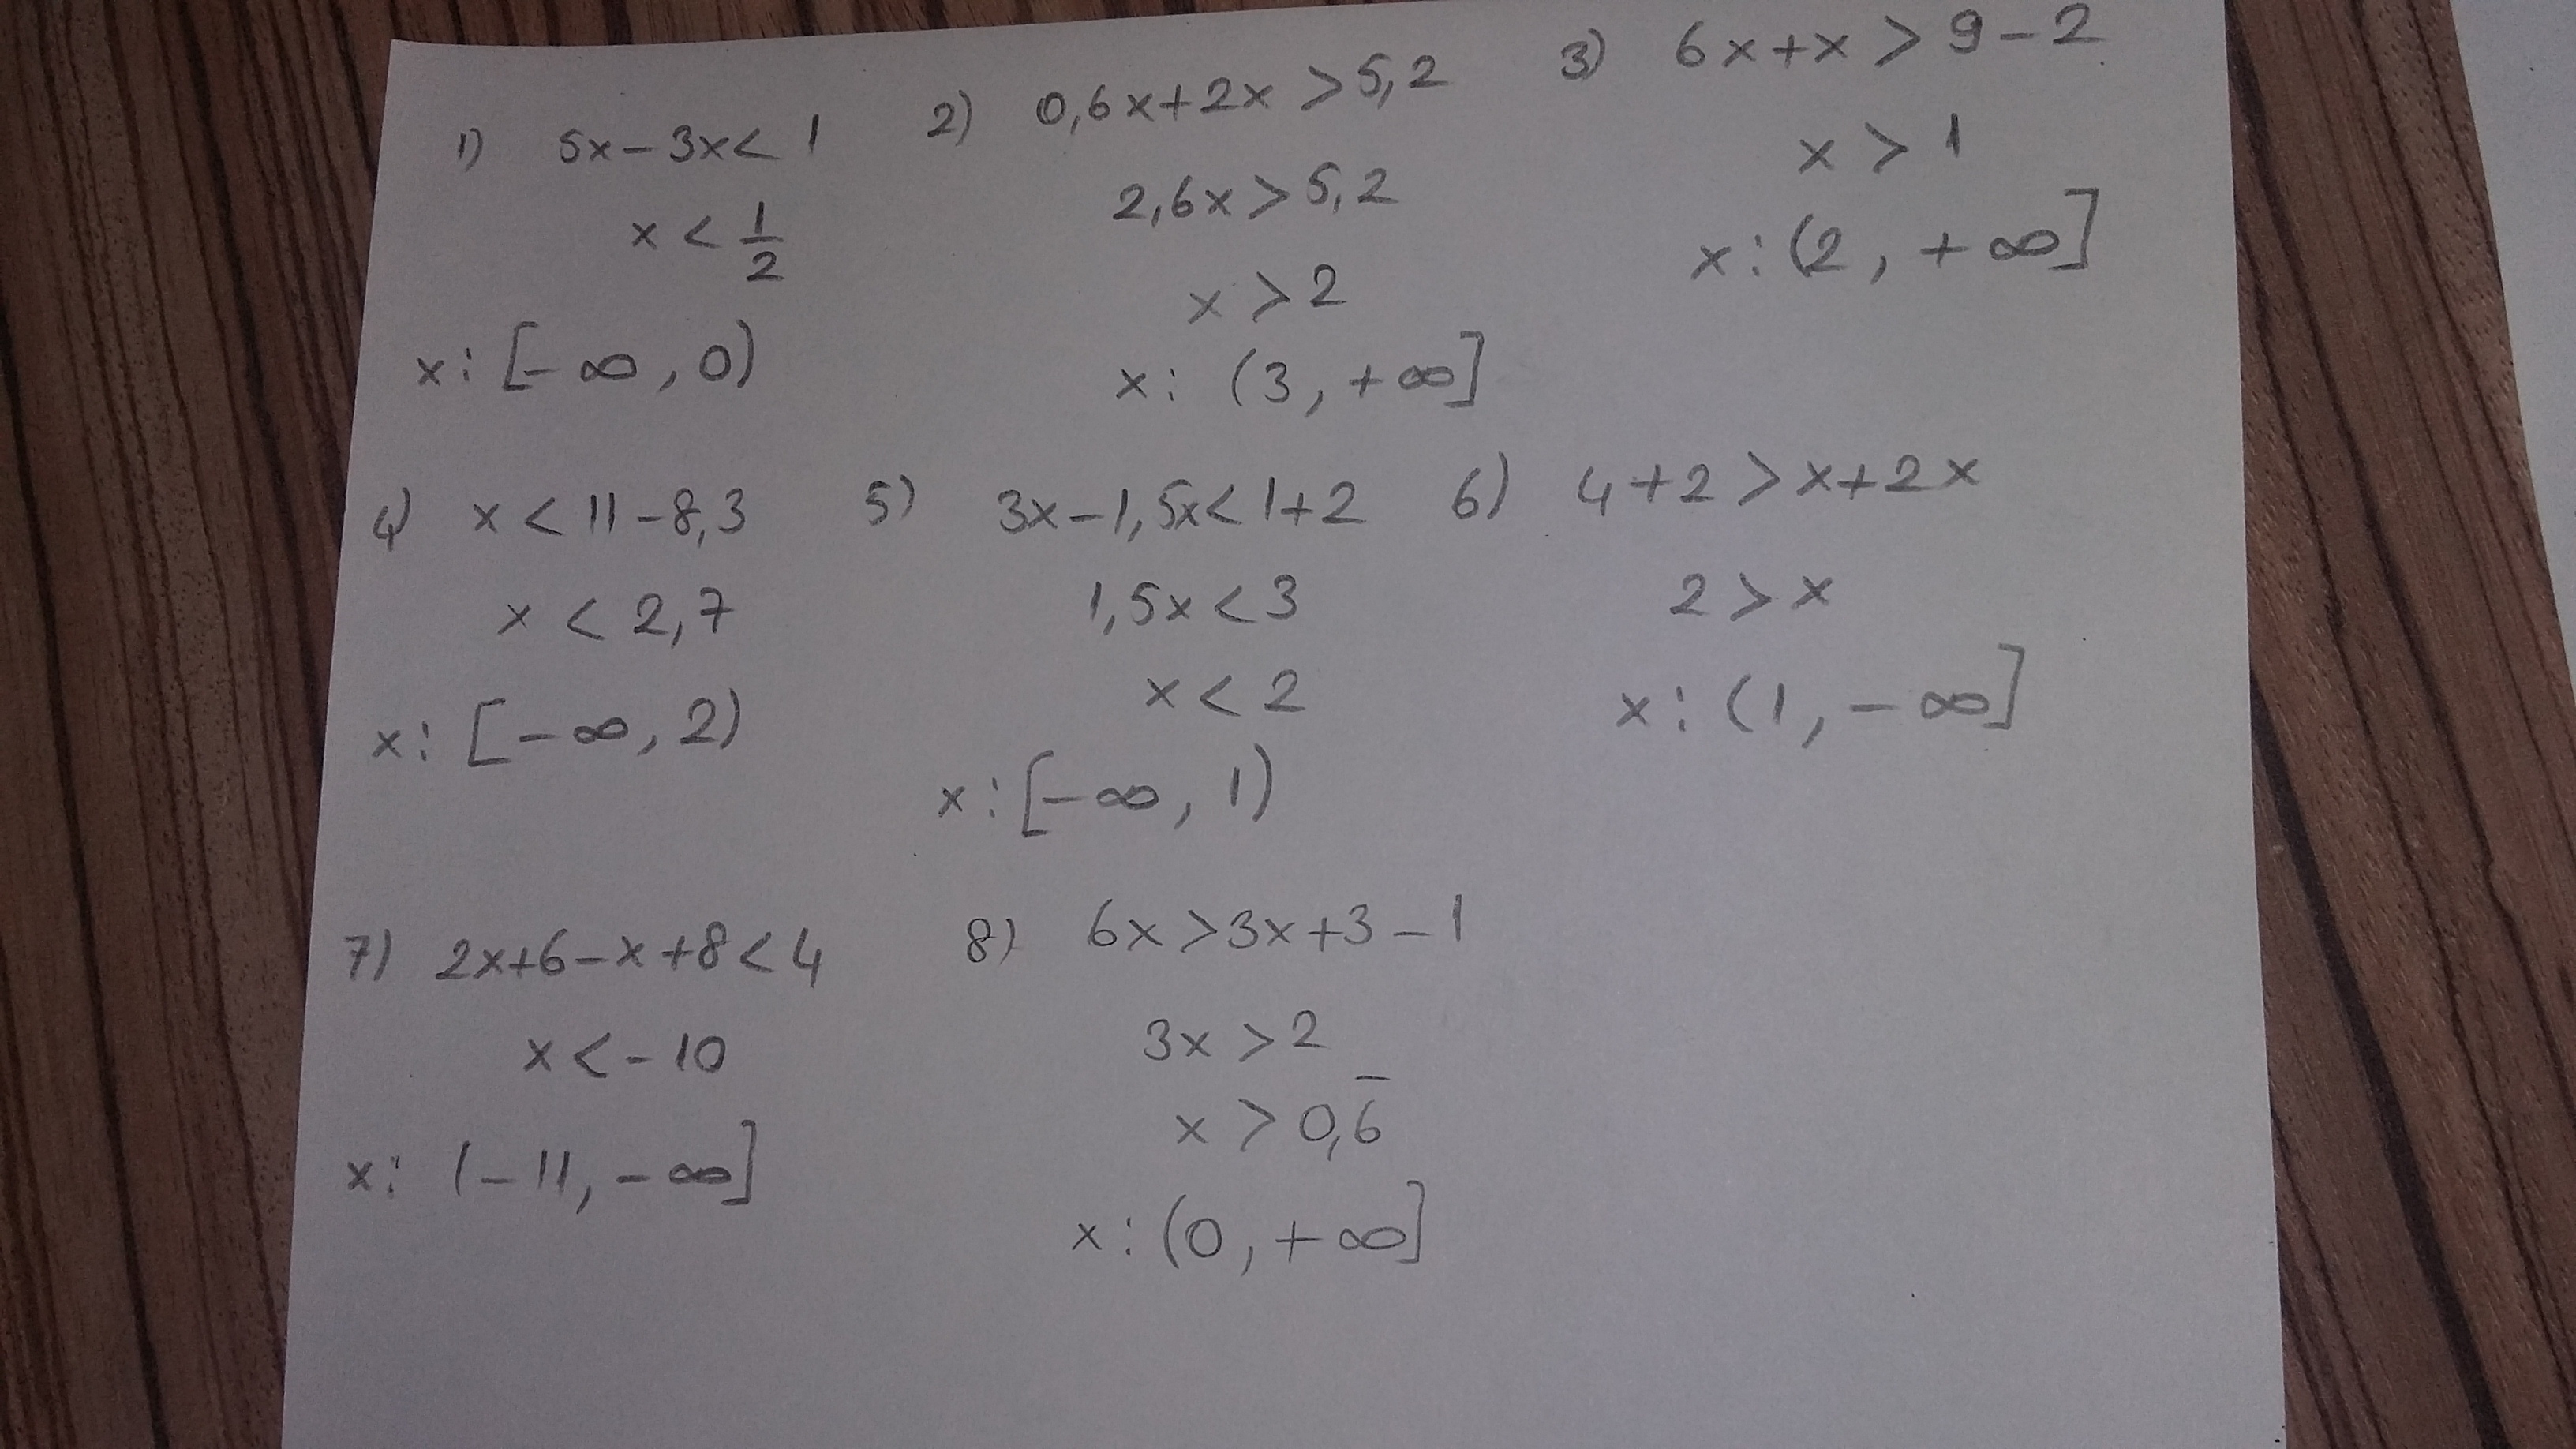 1) 5x-3x<1
x<1/2
x: [-∞, 0)
2) 0,6x+2x>5,2
2,6x>5,2
x>2
x: (3, +∞]
3) 6x+x>9-2
x>1
x: (2, +∞]
4) x<11-8,3
x<2,7
x: [-∞, 2)
5) 3x-1,5x<1+2
1,5x<3
x<2
x: [-∞, 1)
6) 4+2>x+2x
2>x
x: (1, -∞]
7) 2x+6-x+8<4
x<-10
x: (-11, -∞]
8) 6x>3x+3-1
3x>2
x>0,6̅
x: (0, +∞]